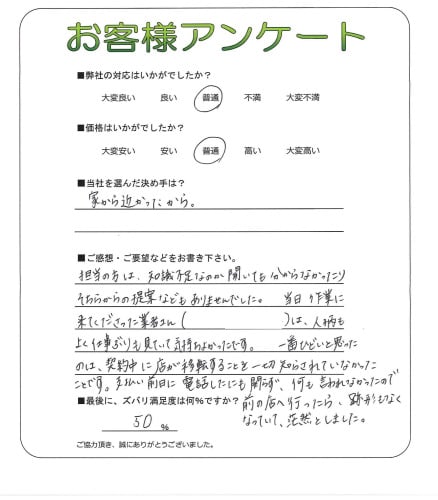 お客様アンケート
■弊社の対応はいかがでしたか？
大変良い 良い 普通 不満 大変不満
■価格はいかがでしたか？
大変安い 安い 普通 高い 大変高い
■当社を選んだ決め手は？
家から近かったから。
■ご感想・ご要望などをお書き下さい。
担当の方は、知識不足なのか聞いても分からなかったり
そちらからの提案などもありませんでした。 当日 作業に
来てくださった業者さん（ ）は、人柄も
よく仕事ぶりも見ていて気持ちよかったです。 一番ひどいと思った
のは、契約中に店が移転することを一切知らされていなかった
ことです。支払い前日に電話したにも関らず、何も言われなかったので
前の店へ行ったら、跡形もなく
なっていて、茫然としました。
■最後に、ズバリ満足度は何%ですか？
50 %
ご協力頂き、誠にありがとうございました。